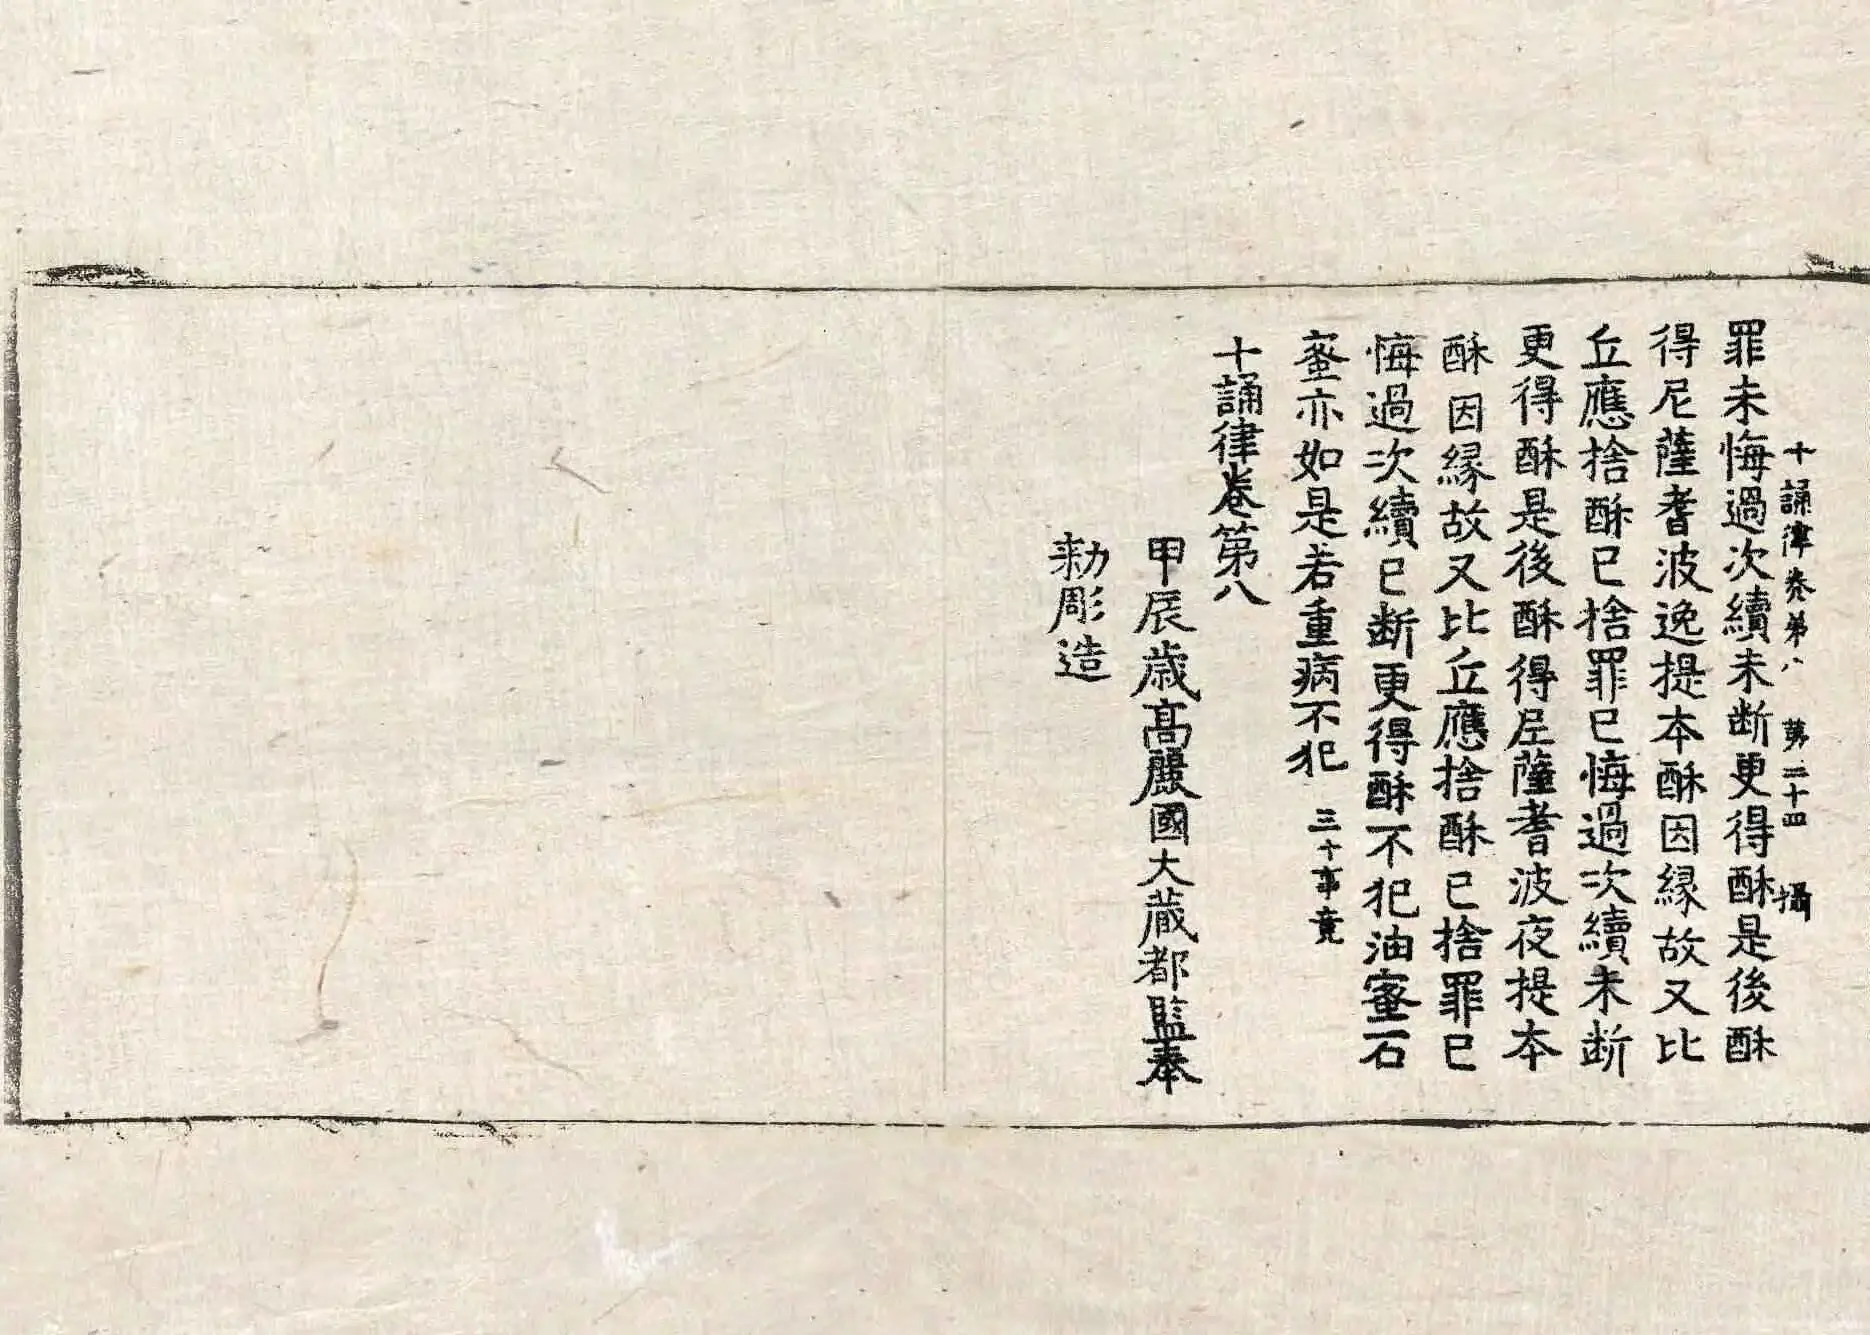 十誦律卷第八 第二十四 攝
罪未悔過次續未断更得酥是後酥
得尼薩耆波逸提本酥因縁故又比
丘應捨酥已捨罪已悔過次續未断
更得酥是後酥得尼薩耆波夜提本
酥因縁故又比丘應捨酥已捨罪已
悔過次續已断更得酥不犯油蜜石
蜜亦如是若重病不犯 三十事竟
十誦律卷第八
甲辰歳高麗國大藏都監奉
勑彫造